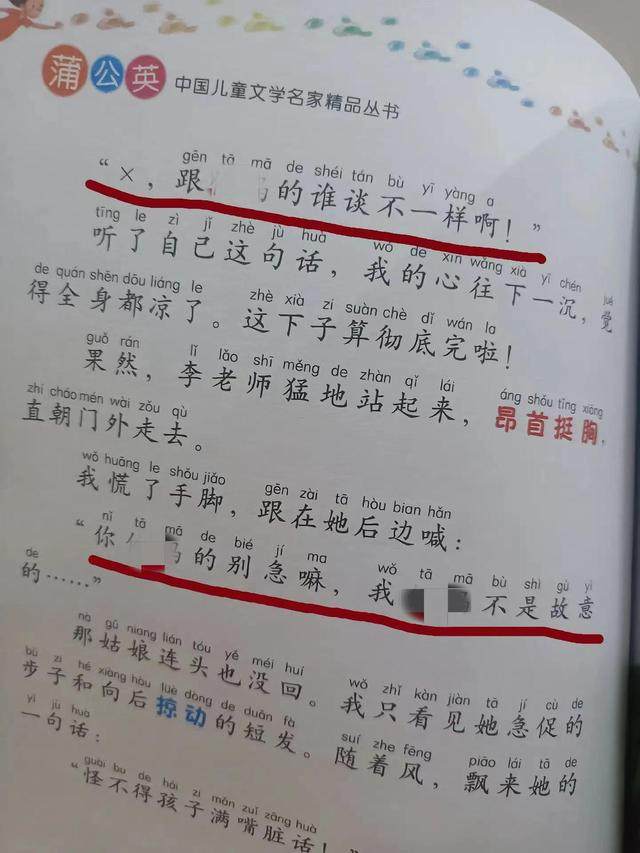 蒲公英 中国儿童文学名家精品丛书
gēn tā mā de shéi tán bù yī yàng a
“×，跟 的谁谈不一样啊！”
tīng le zì jǐ zhè jù huà wǒ de xīn wǎng xià yī chén jué
听了自己这句话，我的心往下一沉，觉
de quán shēn dōu liáng le zhè xià zi suàn chè dǐ wán la
得全身都凉了。这下子算彻底完啦！
guǒ rán lǐ lǎo shī měng de zhàn qǐ lái áng shǒu tǐng xiōng
果然，李老师猛地站起来，昂首挺胸，
zhí cháo mén wài zǒu qù
直朝门外走去。
wǒ huāng le shǒu jiǎo gēn zài tā hòu bian hǎn
我慌了手脚，跟在她后边喊：
nǐ tā mā de bié jí ma wǒ tā mā bù shì gù yì
“你 的别急嘛，我 不是故意
de
的……”
nà gū niang lián tóu yě méi huí wǒ zhǐ kàn jiàn tā jí cù de
那姑娘连头也没回。我只看见她急促的
bù zi hé xiàng hòu lüè dòng de duǎn fà suí zhe fēng piāo lái tā de
步子和向后掠动的短发。随着风，飘来她的
yī jù huà
一句话：
guài bu de hái zi mǎn zuǐ zāng huà
“怪不得孩子满嘴脏话！